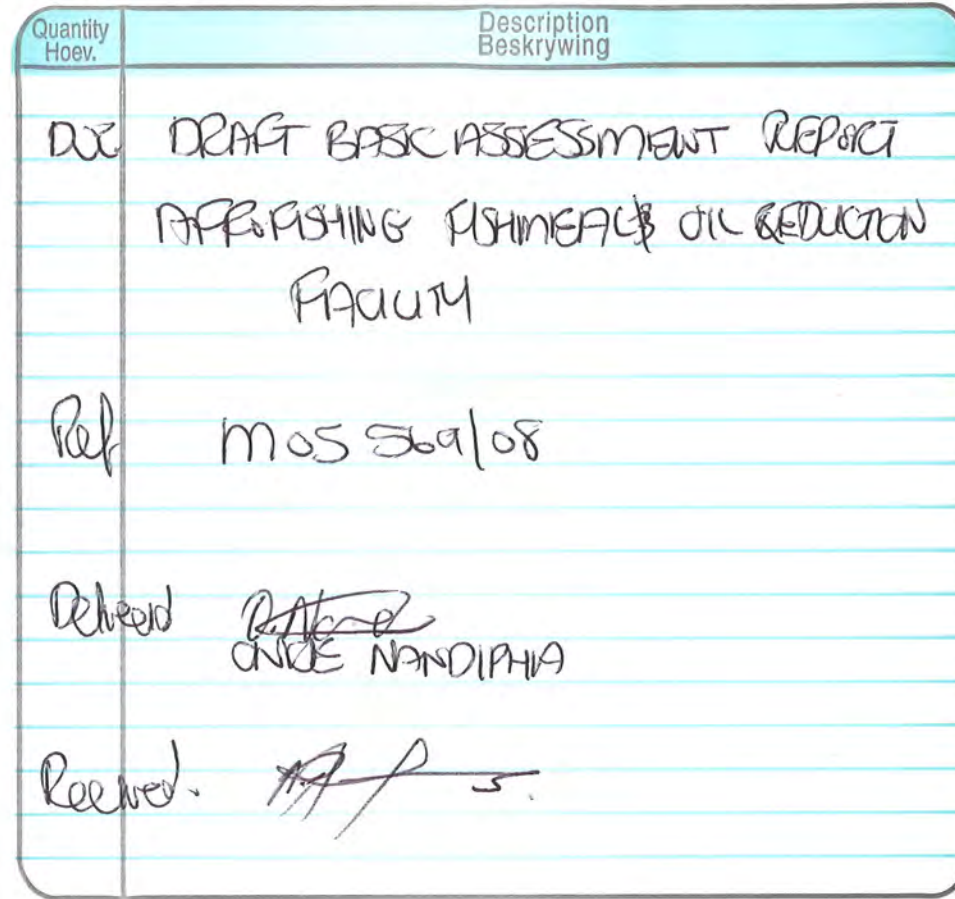 Quantity Description
Hoev. Beskrywing
DOC DRAFT BASIC ASSESSMENT REPORT
AFRO FISHING FISHMEAL & OIL REDUCTION
FACILITY
Ref MOS 569/08
Delivered
NANDIPHIA
Received.